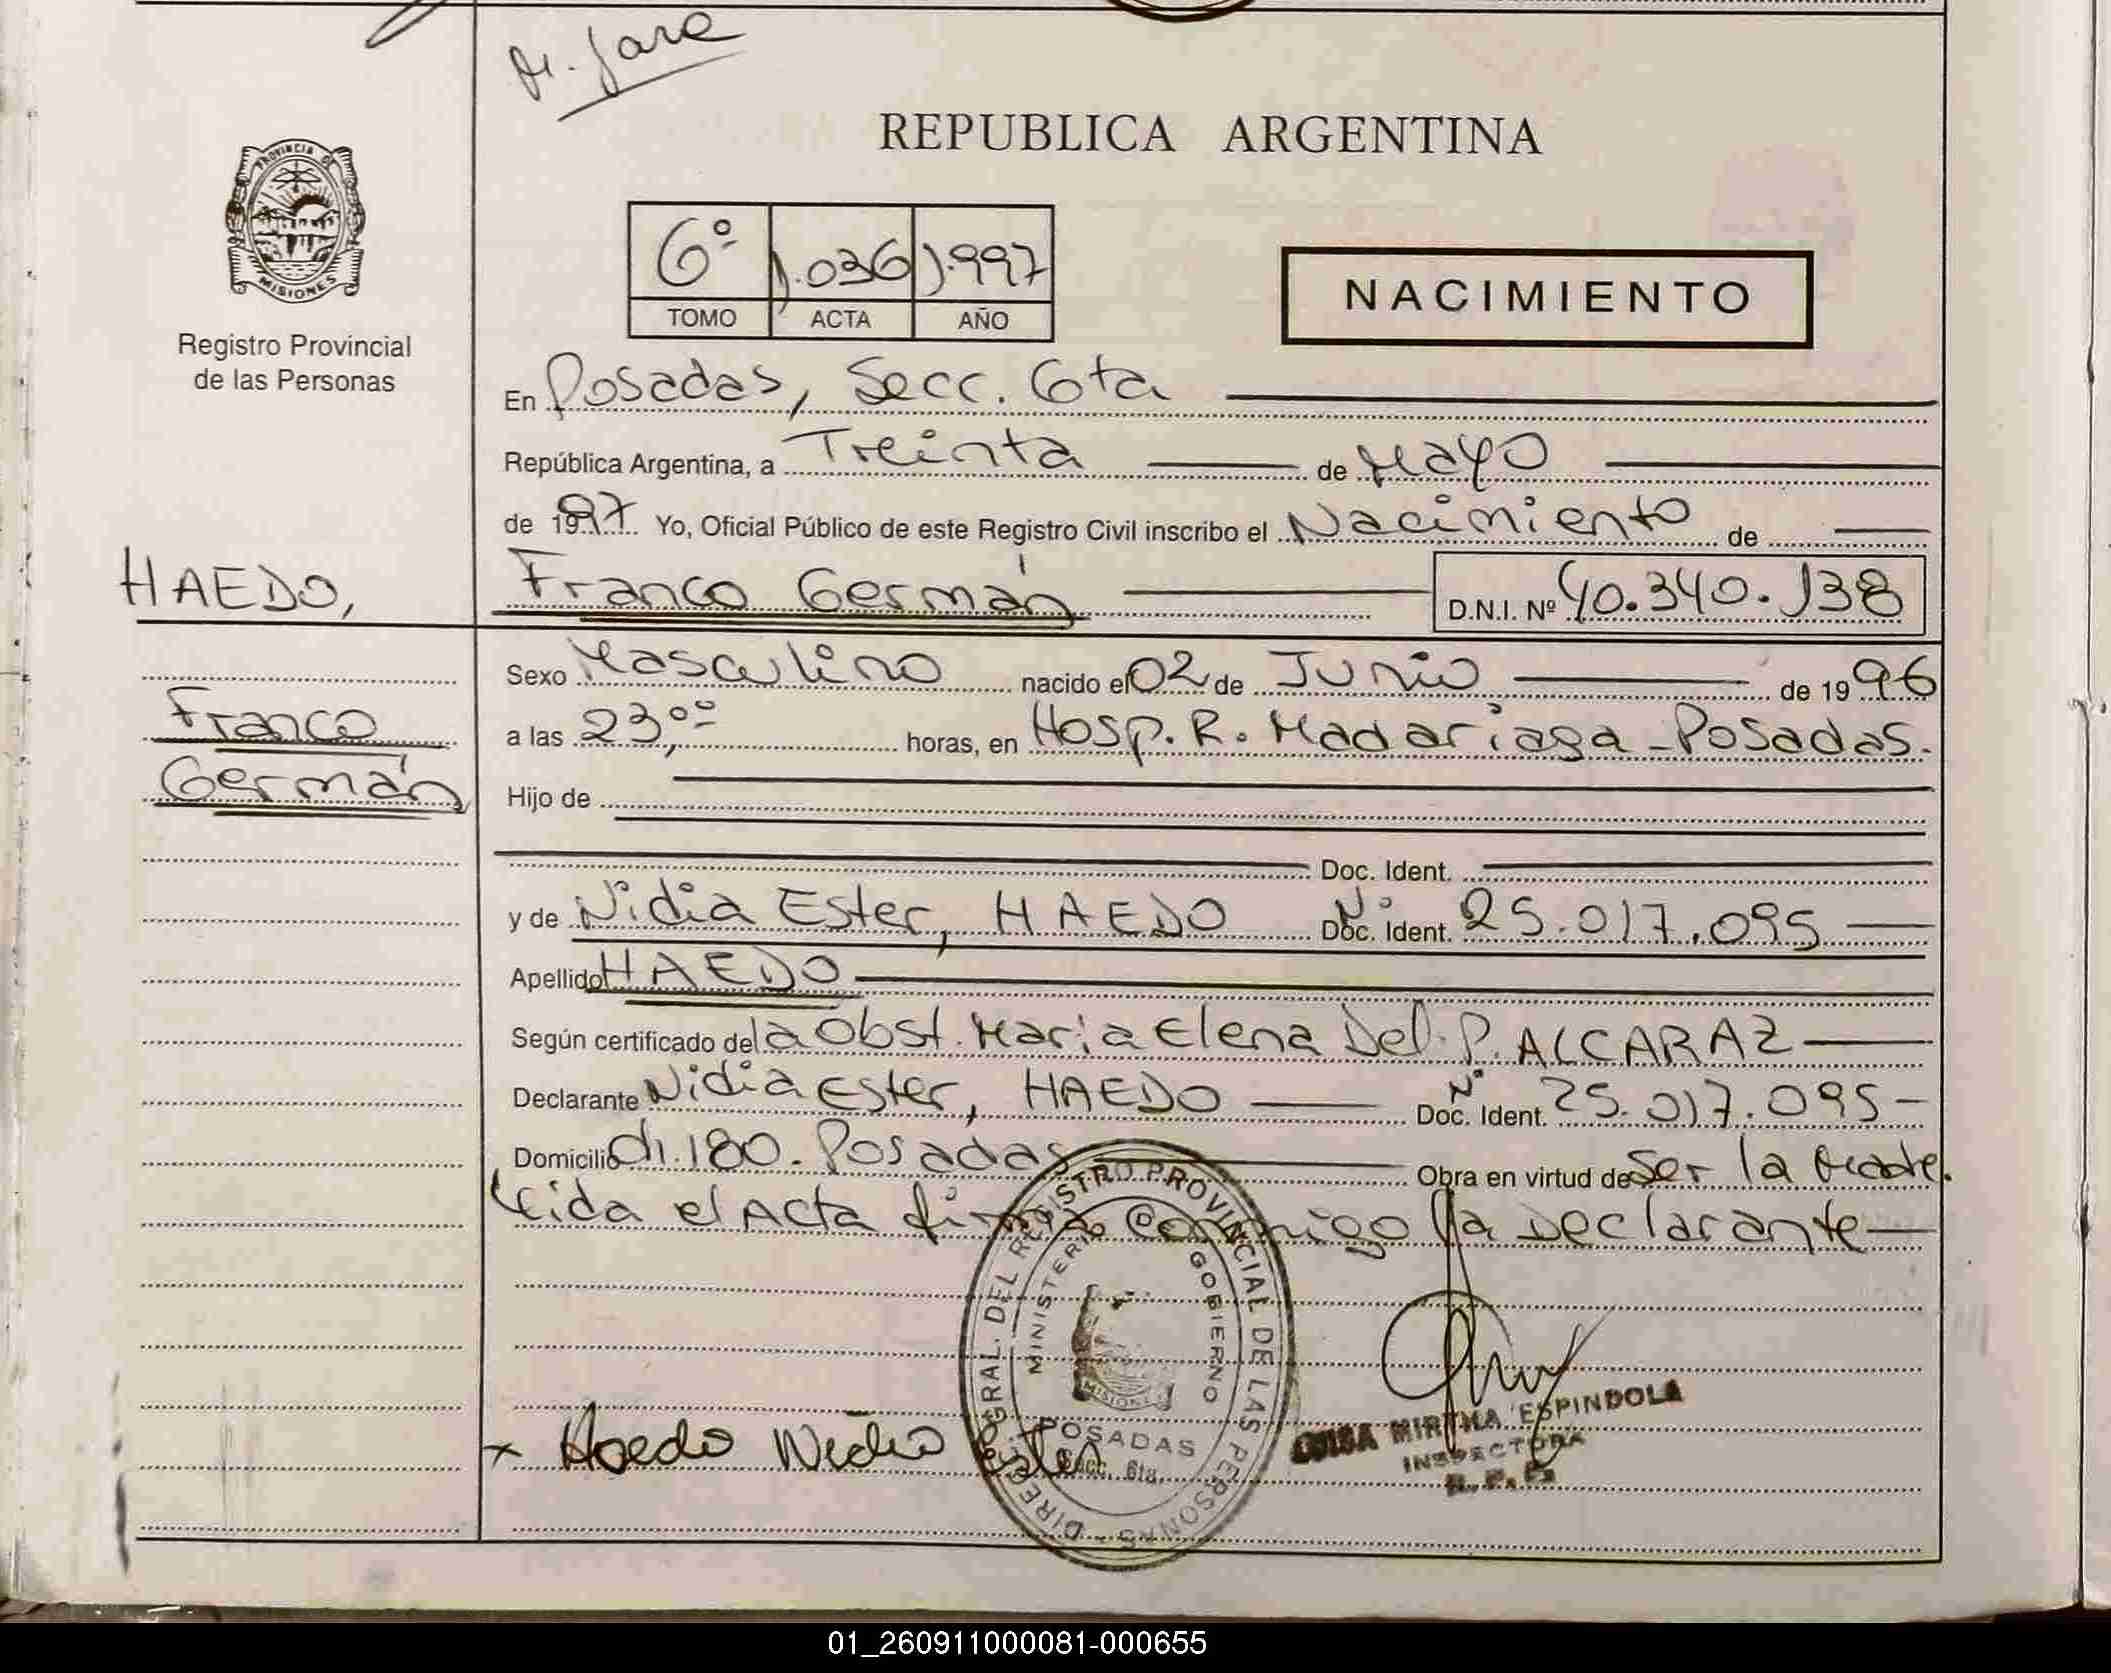 Dr. Jara
REPUBLICA ARGENTINA
PROVINCIA DE
MISIONES
6º 1.036 1.997
TOMO ACTA AÑO
NACIMIENTO
Registro Provincial
de las Personas
En Posadas, Secc. 6ta
República Argentina, a Treinta de Mayo
de 1997 Yo, Oficial Público de este Registro Civil inscribo el Nacimiento de
HAEDO,
Franco Germán D.N.I. Nº 40.340.138
Sexo Masculino nacido el 02 de Junio de 1996
Franco
Germán
a las 23,ºº horas, en Hosp. R. Madariaga - Posadas.
Hijo de
Doc. Ident.
y de Nidia Ester, HAEDO Doc. Ident. Nº 25.017.095
Apellido HAEDO
Según certificado de la Obst. Maria Elena Del. P. ALCARAZ
Declarante Nidia Ester, HAEDO Doc. Ident. Nº 25.017.095
Domicilio 180. Posadas Obra en virtud de Ser la Madre.
Leida el Acta firma conmigo la Declarante
DIREC. GRAL. DEL REGISTRO PROVINCIAL DE LAS PERSONAS
MINISTERIO GOBIERNO
MISIONES
POSADAS
Secc. 6ta.
x Haedo Nidia Ester
LUISA MIRTHA ESPINDOLA
INSPECTORA
R.P.P.
01_260911000081-000655